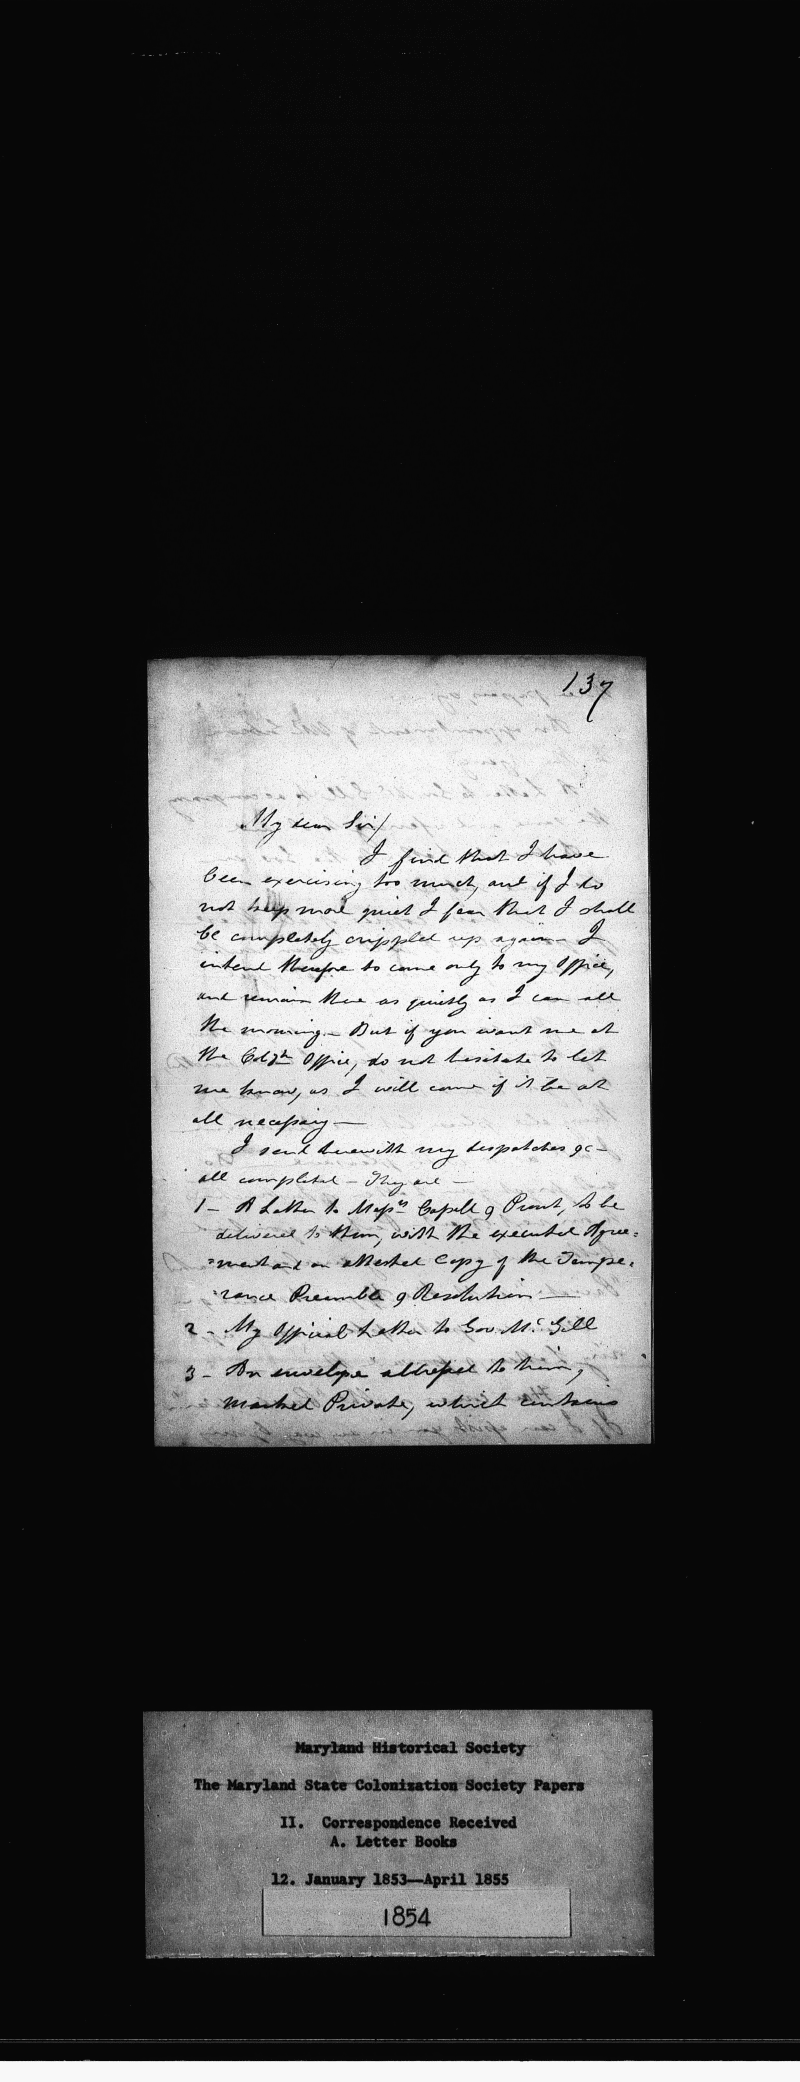 137
My dear Sir/
I find that I have
been exercising too much, and if I do
not keep more quiet I fear that I shall
be completely crippled up again — I
intend therefore to come only to my Office,
and remain there as quietly as I can all
the morning — But if you want me at
the Colzn Office, do not hesitate to let
me know, as I will come if it be at
all necessary —
I send herewith my despatches &c —
all completed — They are —
1 — A Letter to Messrs & Prout, to be
delivered to them, with the executed Agree=
=ment and an attested Copy of the Tempe=
=rance Preamble & Resolution —
2 — My Official Letter to Gov. Mc Gill
3 — An envelope addressed to him,
marked Private, which contains
Maryland Historical Society
The Maryland State Colonization Society Papers
II. Correspondence Received
A. Letter Books
12. January 1853—April 1855
1854